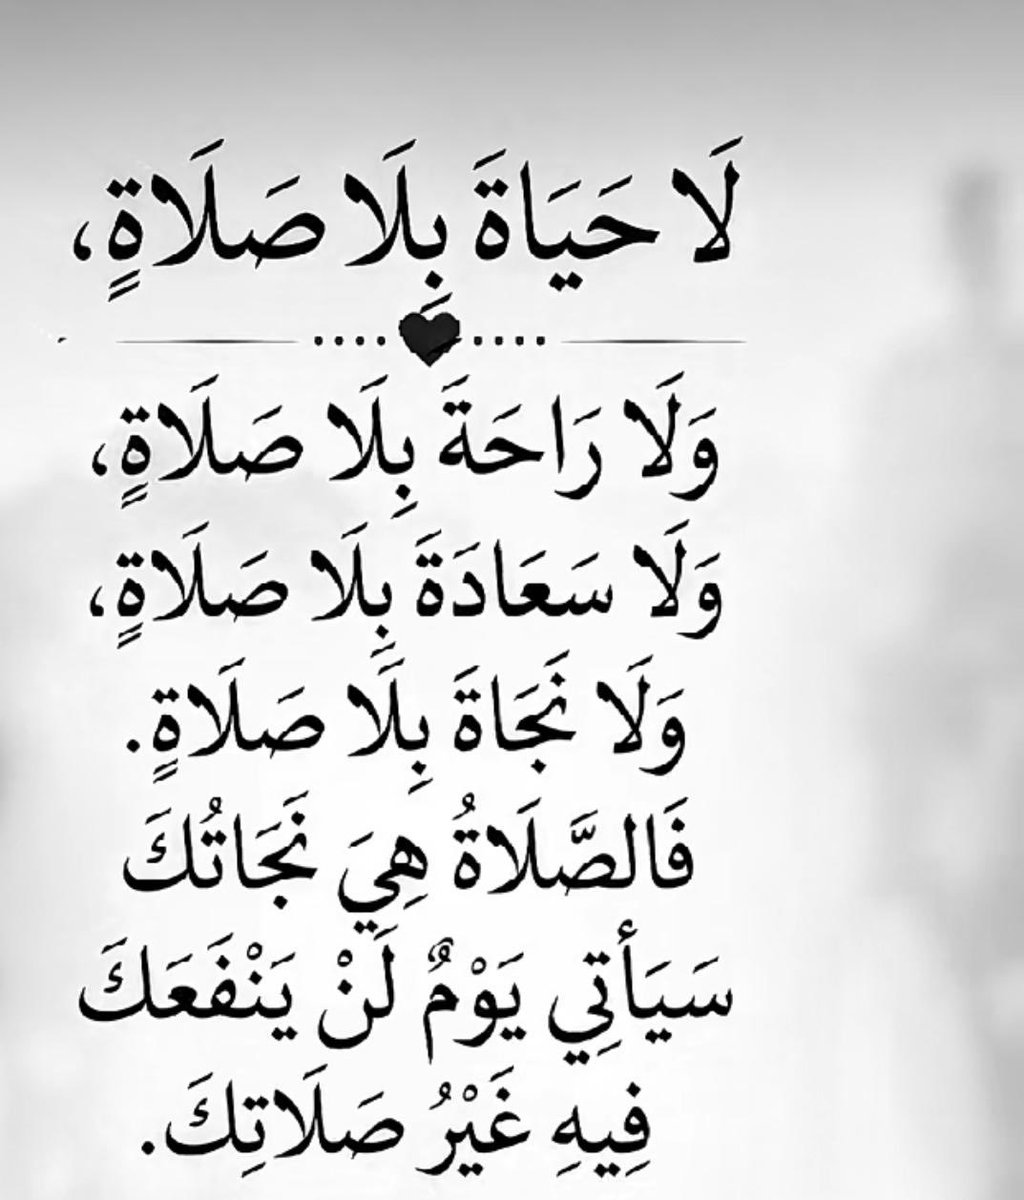 لَا حَيَاةَ بِلَا صَلَاةٍ،
وَلَا رَاحَةَ بِلَا صَلَاةٍ،
وَلَا سَعَادَةَ بِلَا صَلَاةٍ،
وَلَا نَجَاةَ بِلَا صَلَاةٍ.
فَالصَّلَاةُ هِيَ نَجَاتُكَ
سَيَأتِي يَوْمٌ لَنْ يَنْفَعَكَ
فِيهِ غَيْرُ صَلَاتِكَ.